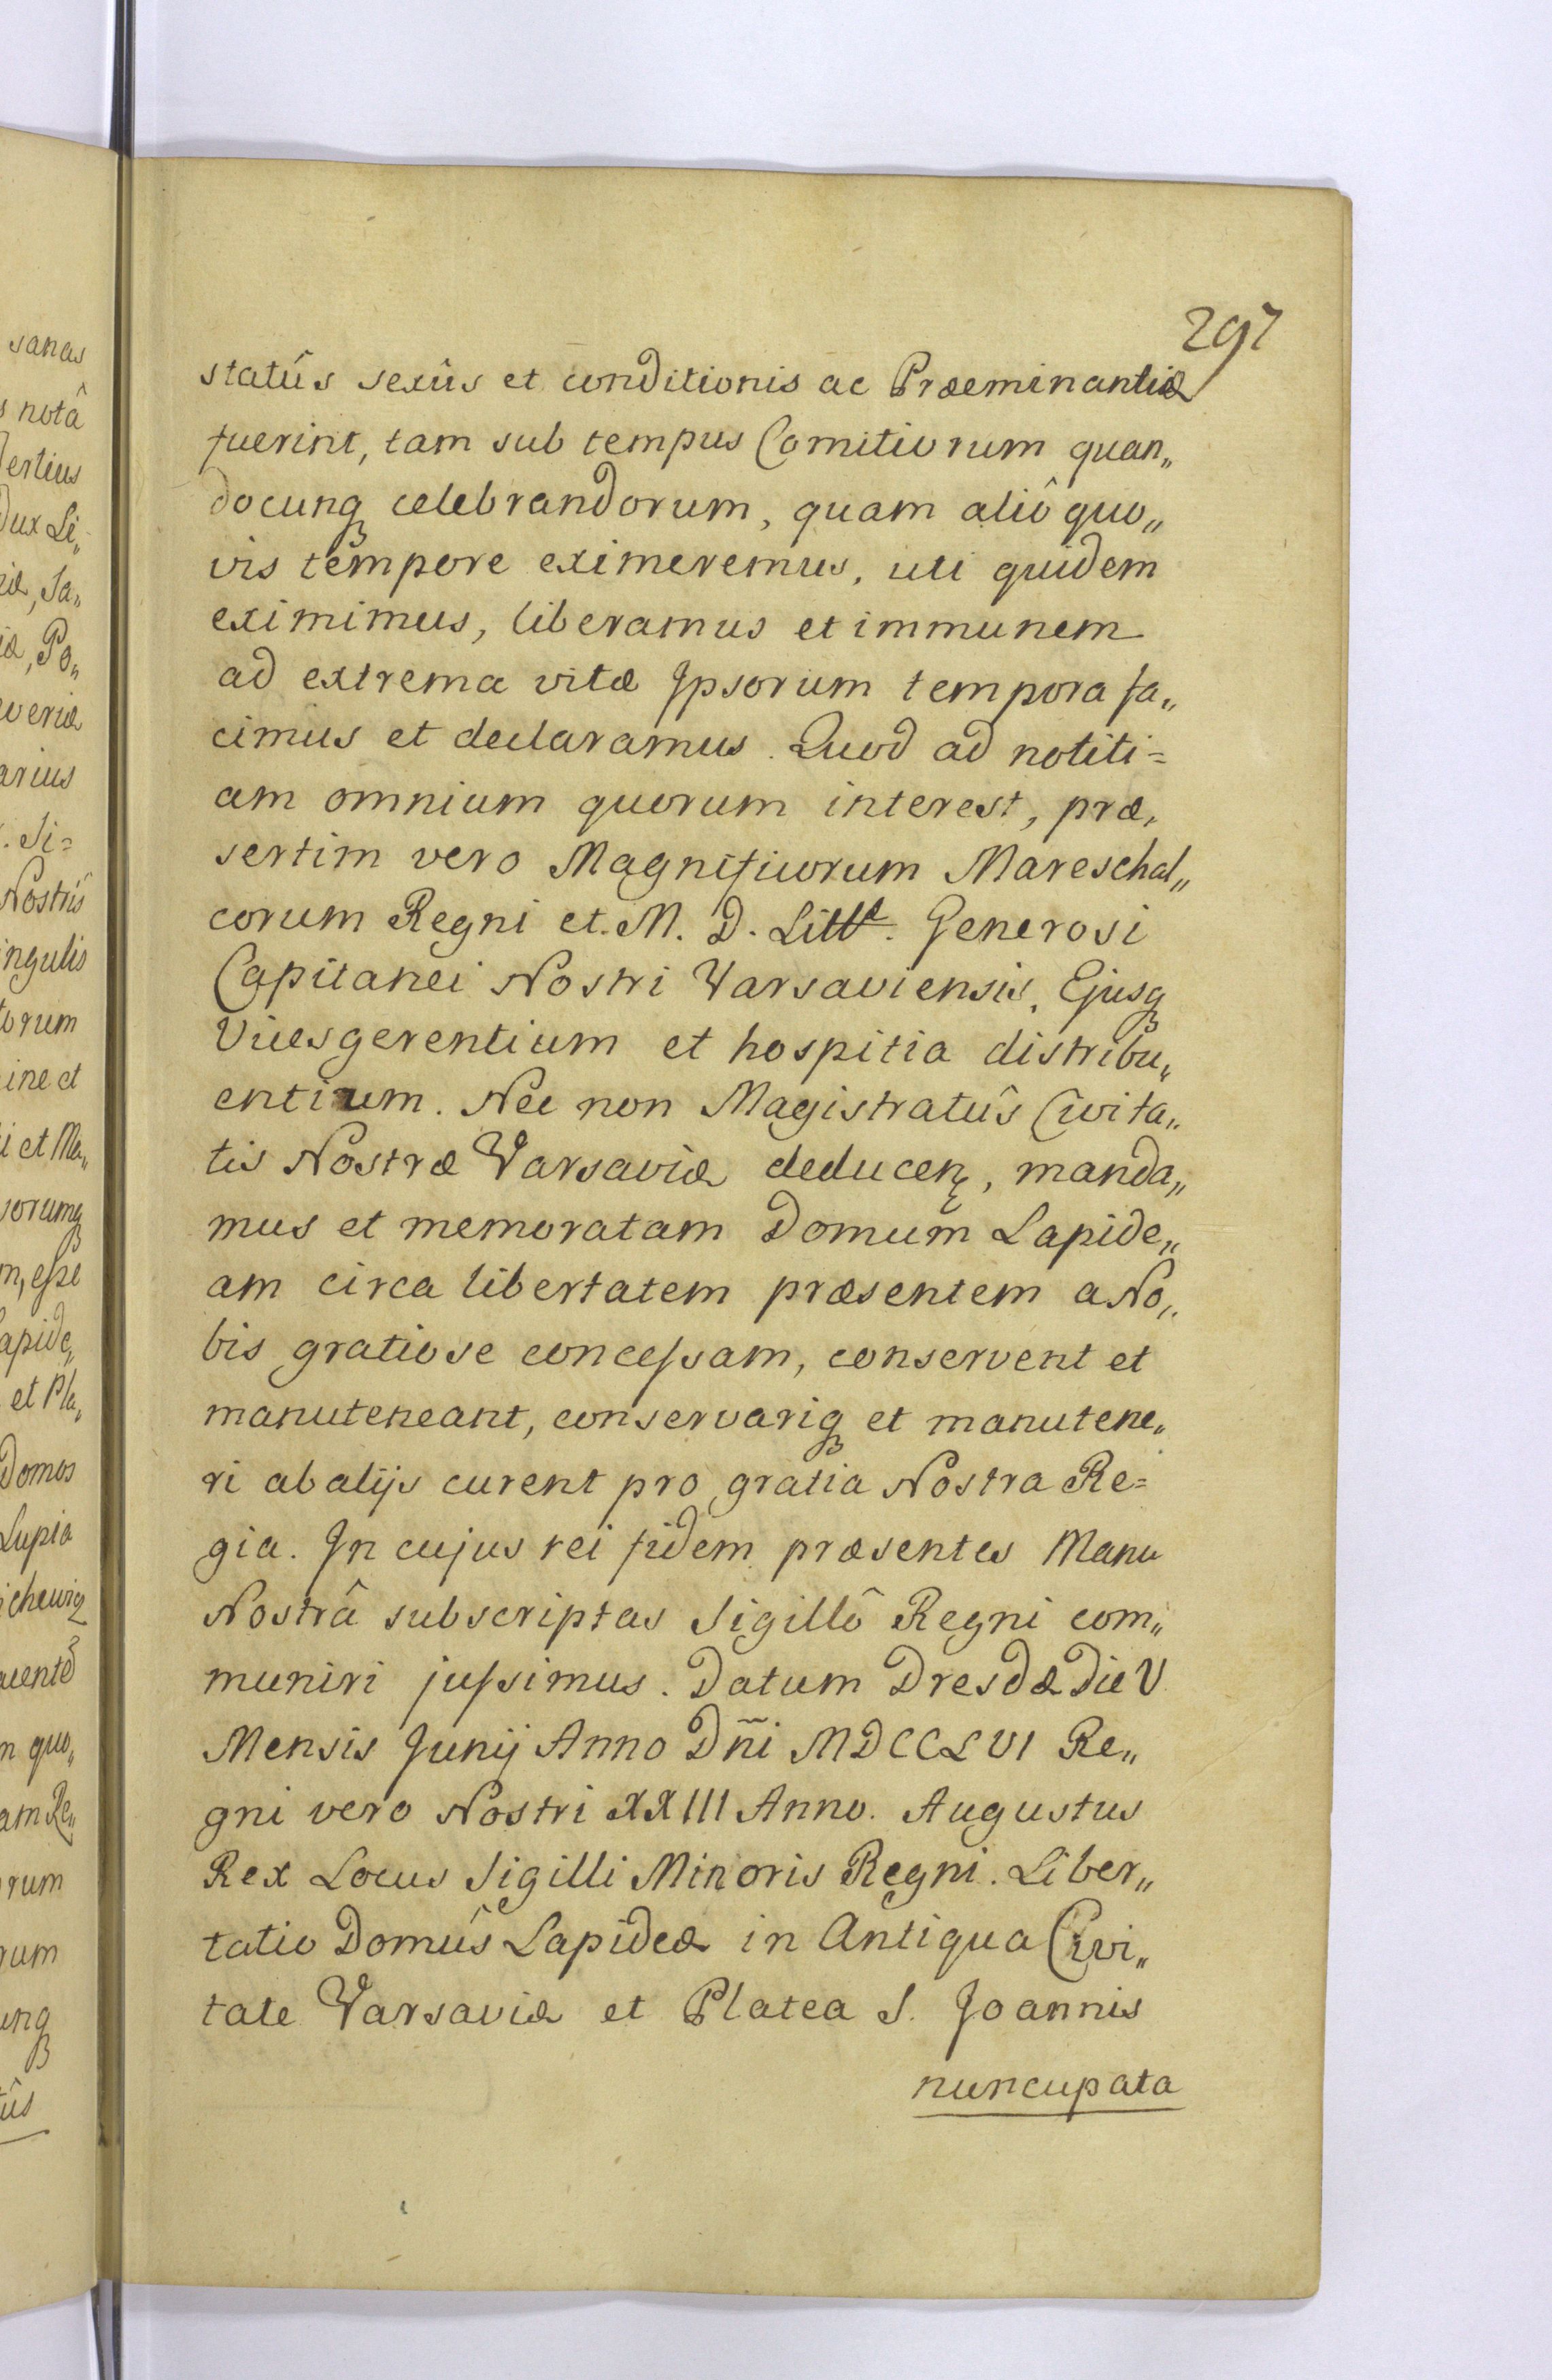 297
statûs sexûs et conditionis ac Præeminantiæ
fuerint, tam sub tempus Comitiorum quan„
docunq celebrandorum, quam aliô quo„
vis tempore eximeremus, uti quidem
eximimus, liberamus et immunem
ad extrema vitæ Ipsorum tempora fa„
cimus et declaramus. Quod ad notiti=
am omnium quorum interest, præ„
sertim vero Magnificorum Mareschal„
corum Regni et M. D. Litt. Generosi
Capitanei Nostri Varsaviensis, Ejusq
Vicesgerentium et hospitia distribu„
entium. Nec non Magistratûs Civita„
tis Nostræ Varsaviæ deducen, manda„
mus et memoratam Domum Lapide„
am circa libertatem præsentem a No„
bis gratiose concessam, conservent et
manuteneant, conservariq et manutene„
ri ab alijs curent pro gratia Nostra Re=
gia. In cujus rei fidem præsentes Manu
Nostrâ subscriptas Sigillô Regni com„
muniri jussimus. Datum Dresdæ Die V
Mensis Junij Anno Dñi MDCCLVI Re„
gni vero Nostri XXIII Anno. Augustus
Rex Locus Sigilli Minoris Regni. Liber„
tatio Domûs Lapideæ in Antiqua Civi„
tate Varsaviæ et Platea S. Joannis
nuncupata
sanas
notâ
ertius
dux Li„
iæ, Sa„
iæ, Po„
veriæ
arius
Si=
Nostris
ingulis
torum
ine et
i et Ma„
sorumq
m, esse
apide„
et Pla„
Domos
Lupia
n quo„
am Re„
rum
rum
unq
ûs